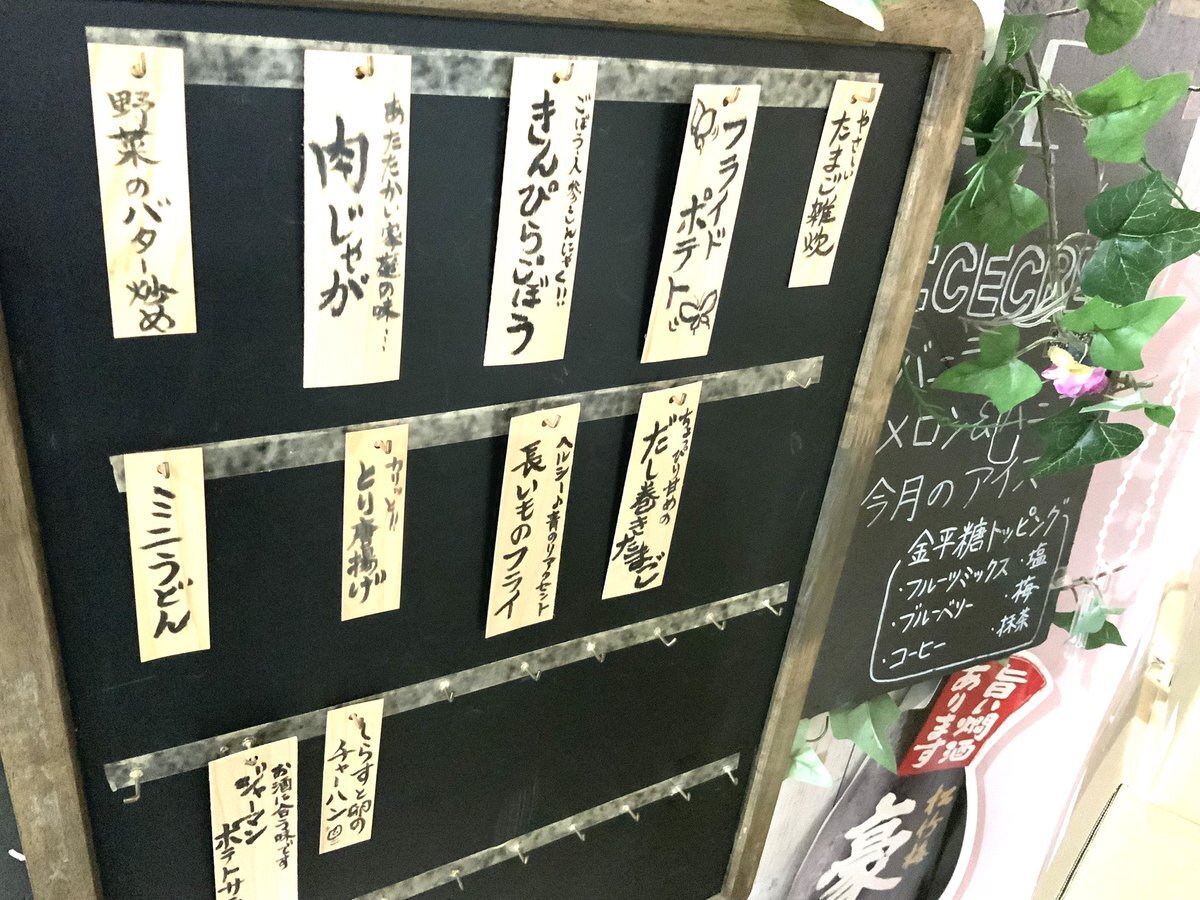 やさしい
たまご雑炊
フライド
ポテト
ごぼう人参とこんにゃく!!
きんぴらごぼう
あたたかい家庭の味…
肉じゃが
野菜のバター炒め
ちょっぴり甘めの
だし巻きたまご
ヘルシー♪青のりアクセント
長いものフライ
カリッと!!
とり唐揚げ
ミニうどん
しらすと卵の
チャーハン
お酒に合う味です
ジャーマン
ポテトサ
ECECRE
メロン&
今月のアイス
金平糖トッピング
・フルーツミックス
・ブルーベリー
・コーヒー
・塩
・梅
・抹茶
旨い燗酒
あります
松竹梅
豪